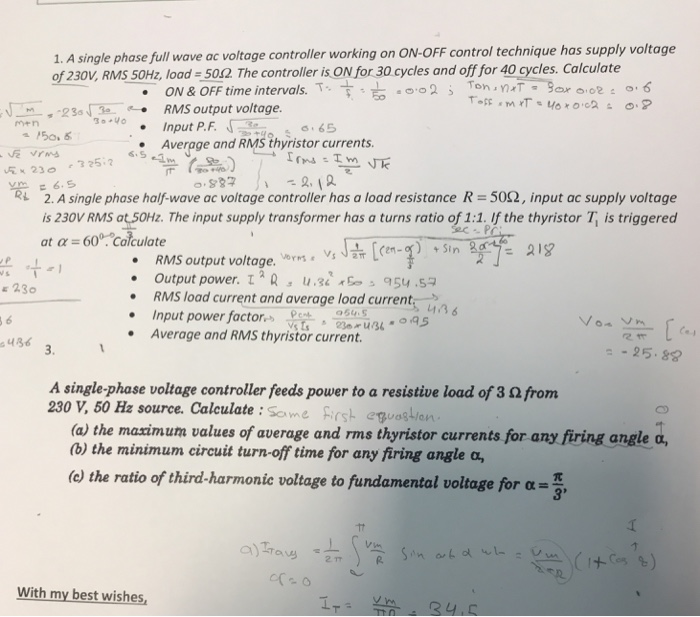 1. A single phase full wave ac voltage controller working on ON-OFF control technique has supply voltage
of 230V, RMS 50Hz, load = 50Ω. The controller is ON for 30 cycles and off for 40 cycles. Calculate
• ON & OFF time intervals. T = 1/f = 1/50 = 0.02 ; Ton = n×T = 30×0.02 = 0.6
Toff = m×T = 40×0.02 = 0.8
• RMS output voltage.
= 150.6
• Input P.F. √ 30/30+40 = 0.65
• Average and RMS thyristor currents.
Irms = Im/2 √k
= 2.12
√2 Vrms
√2 × 230 = 325.2
Vm/RL = 6.5
0.887
2. A single phase half-wave ac voltage controller has a load resistance R = 50Ω, input ac supply voltage
is 230V RMS at 50Hz. The input supply transformer has a turns ratio of 1:1. If the thyristor T₁ is triggered
at α = 60⁰. Calculate
• RMS output voltage. = 218
• Output power. I² R = 4.36² × 50 = 954.57
• RMS load current and average load current.
4.36
• Input power factor. = 954.5/230×4.36 = 0.95
• Average and RMS thyristor current.
= 1/1 = 1
= 230
Vo = Vm/2π [
= -25.88
3.
A single-phase voltage controller feeds power to a resistive load of 3 Ω from
230 V, 50 Hz source. Calculate : Same first
(a) the maximum values of average and rms thyristor currents for any firing angle α,
(b) the minimum circuit turn-off time for any firing angle α,
(c) the ratio of third-harmonic voltage to fundamental voltage for α = π/3,
a) Iavg = 1/2π ∫ Vm/R Sin
α=0
With my best wishes,
IT = = 34.5